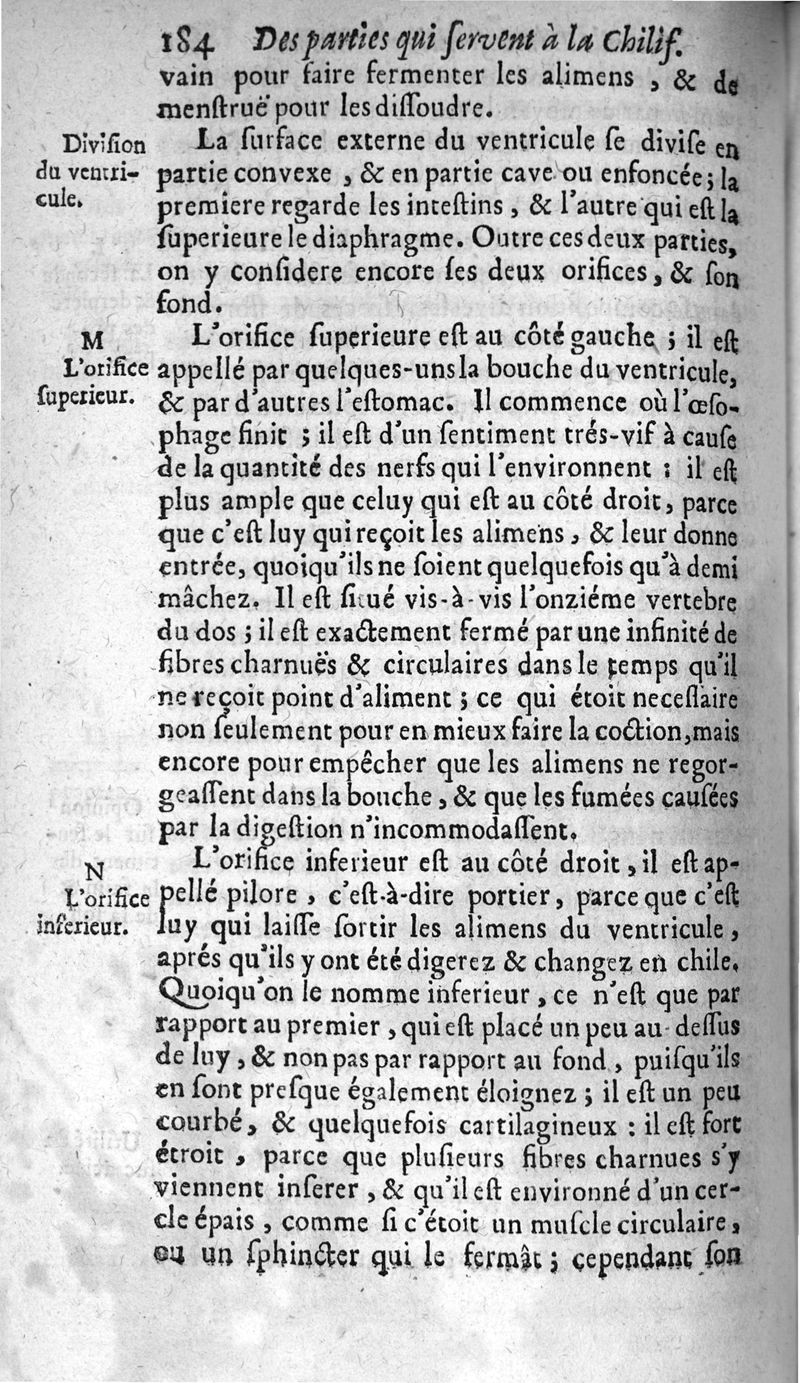 184 Des parties qui ſervent à la Chilif.
vain pour faire fermenter les alimens, & de
menſtruë pour les diſſoudre.
Diviſion
du ventri-
cule.
La ſurface externe du ventricule ſe diviſe en
partie convexe, & en partie cave ou enfoncée; la
premiere regarde les inteſtins, & l'autre qui eſt la
ſuperieure le diaphragme. Outre ces deux parties,
on y conſidere encore ſes deux orifices, & ſon
fond.
M
L'orifice
ſuperieur.
L'orifice ſuperieure eſt au côté gauche; il eſt
appellé par quelques-uns la bouche du ventricule,
& par d'autres l'eſtomac. Il commence où l'œſo-
phage finit; il eſt d'un ſentiment trés-vif à cauſe
de la quantité des nerfs qui l'environnent: il eſt
plus ample que celuy qui eſt au côté droit, parce
que c'eſt luy qui reçoit les alimens, & leur donne
entrée, quoiqu'ils ne ſoient quelquefois qu'à demi
mâchez. Il eſt ſitué vis-à-vis l'onziéme vertebre
du dos; il eſt exactement fermé par une infinité de
fibres charnuës & circulaires dans le temps qu'il
ne reçoit point d'aliment; ce qui étoit neceſſaire
non ſeulement pour en mieux faire la coction, mais
encore pour empêcher que les alimens ne regor-
geaſſent dans la bouche, & que les fumées cauſées
par la digeſtion n'incommodaſſent.
N
L'orifice
inferieur.
L'orifice inferieur eſt au côté droit, il eſt ap-
pellé pilore, c'eſt-à-dire portier, parce que c'eſt
luy qui laiſſe ſortir les alimens du ventricule,
aprés qu'ils y ont été digerez & changez en chile.
Quoiqu'on le nomme inferieur, ce n'eſt que par
rapport au premier, qui eſt placé un peu au-deſſus
de luy, & non pas par rapport au fond, puiſqu'ils
en ſont preſque également éloignez; il eſt un peu
courbé, & quelquefois cartilagineux: il eſt fort
étroit, parce que pluſieurs fibres charnues s'y
viennent inſerer, & qu'il eſt environné d'un cer-
cle épais, comme ſi c'étoit un muſcle circulaire,
ou un ſphincter qui le fermât; cependant ſon